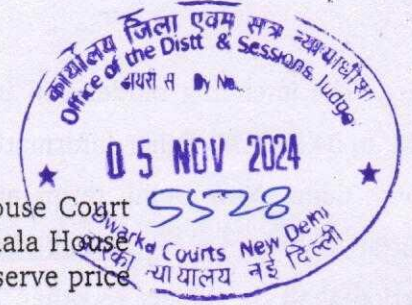 कार्यालय जिला एवम सत्र न्यायाधीश
Office of the Distt & Sessions Judge
डायरी सं By No.
05 NOV 2024
5528
Dwarka Courts New Delhi
न्यायालय नई दिल्ली
ouse Court
ala House
serve price